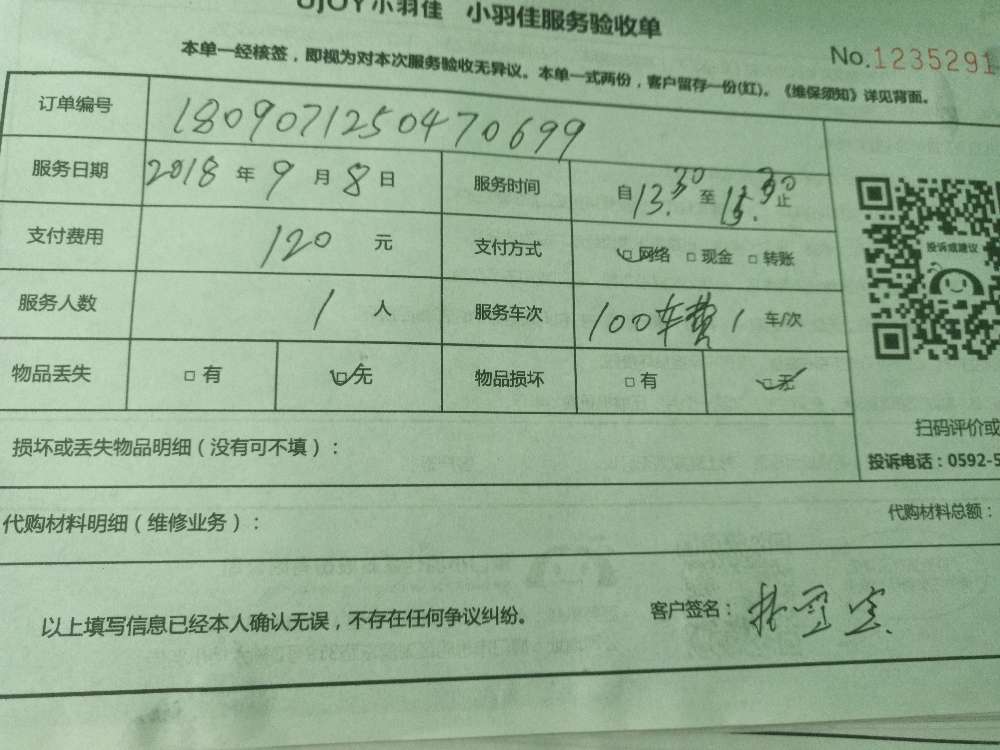 UJOY小羽佳 小羽佳服务验收单
本单一经核签，即视为对本次服务验收无异议。本单一式两份，客户留存一份(红)。《维保须知》详见背面。
No.1235291
订单编号 180907125047 0699
服务日期 2018 年 9 月 8 日 服务时间 自 13.30 至 15.30 止
支付费用 120 元 支付方式 □网络 □现金 □转账
服务人数 1 人 服务车次 100车费 1 车/次
物品丢失 □有 □无 物品损坏 □有 □无
投诉或建议
扫码评价或
投诉电话：0592-5
损坏或丢失物品明细（没有可不填）：
代购材料明细（维修业务）： 代购材料总额：
以上填写信息已经本人确认无误，不存在任何争议纠纷。 客户签名：